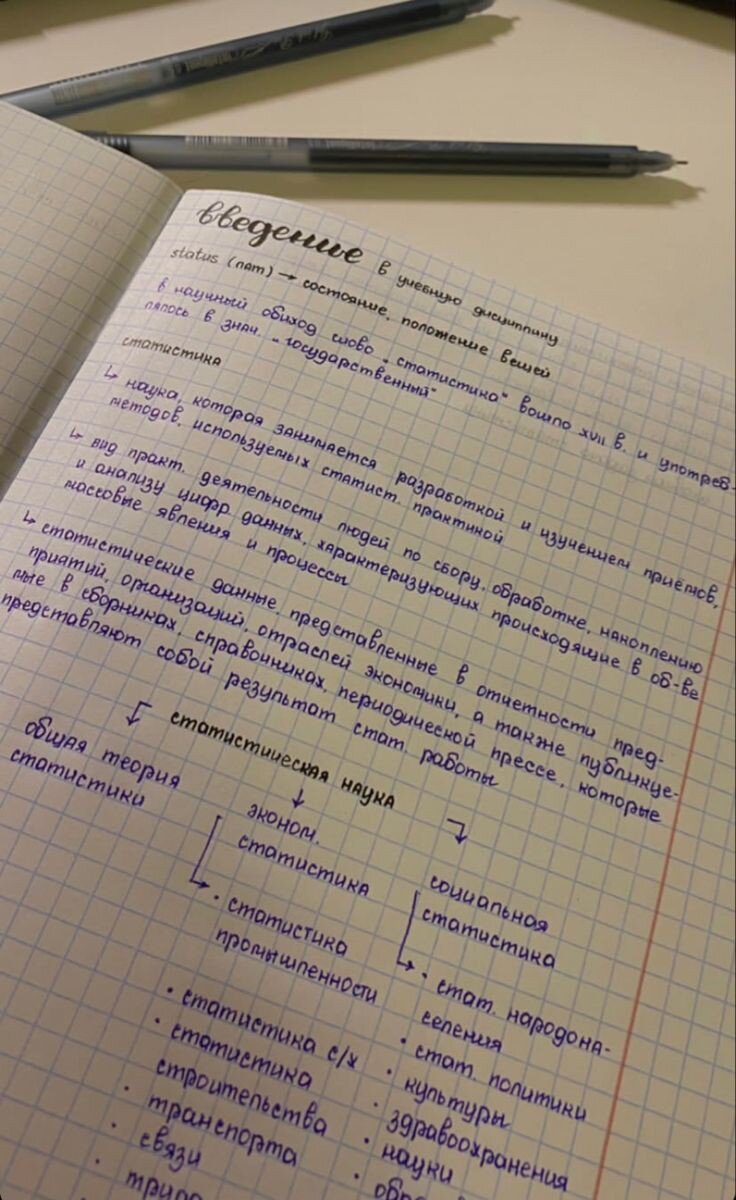 введение в учебную дисциплину
status (лат) → состояние, положение вещей
в научный обиход слово „статистика" вошло XVII в. и употреб-
лялось в знач. „государственный"
статистика
↳ наука, которая занимается разработкой и изучением приёмов,
методов, используемых статист. практикой
↳ вид практ. деятельности людей по сбору, обработке, накоплению
и анализу цифр. данных, характеризующих происходящие в об-ве
массовые явления и процессы
↳ статистические данные, представленные в отчетности пред-
приятий, организаций, отраслей экономики, а также публикуе-
мые в сборниках, справочниках, периодической прессе, которые
представляют собой результат стат. работы
статистическая наука
общая теория
статистики
эконом.
статистика
• статистика
промышленности
• статистика с/х
• статистика
строительства
• транспорта
• связи
социальная
статистика
• стат. народона-
селения
• стат. политики
• культуры
• здравоохранения
• науки